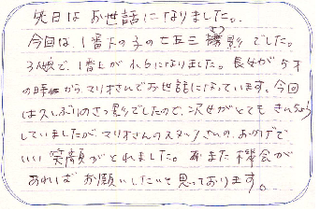 先日は お世話に なりました。
今回は、1番下の子の七五三撮影でした。
3人娘で、1番上が、れ6になりました。長女が5才
の時から マリオさんでお世話になっています。今回
は久しぶりのさつ影でしたので、次女がとても きんちょう
していましたが マリオさんのスタッフさんの、おかげで
いい 笑顔がとれました。 またまた 機会が
あれば お願いしたいと 思っております。